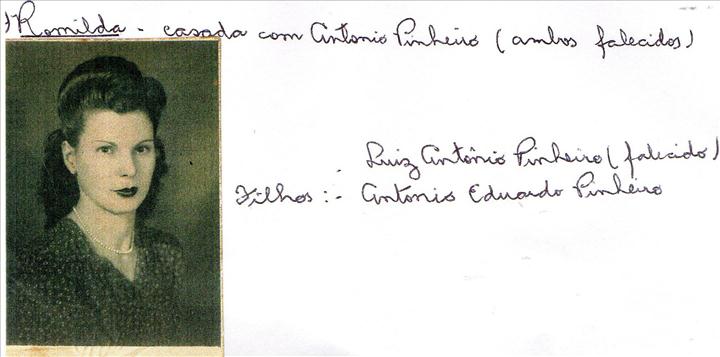 Romilda - casada com Antonio Pinheiro (ambos falecidos)
Luiz Antônio Pinheiro (falecido)
Filhos :- Antonio Eduardo Pinheiro